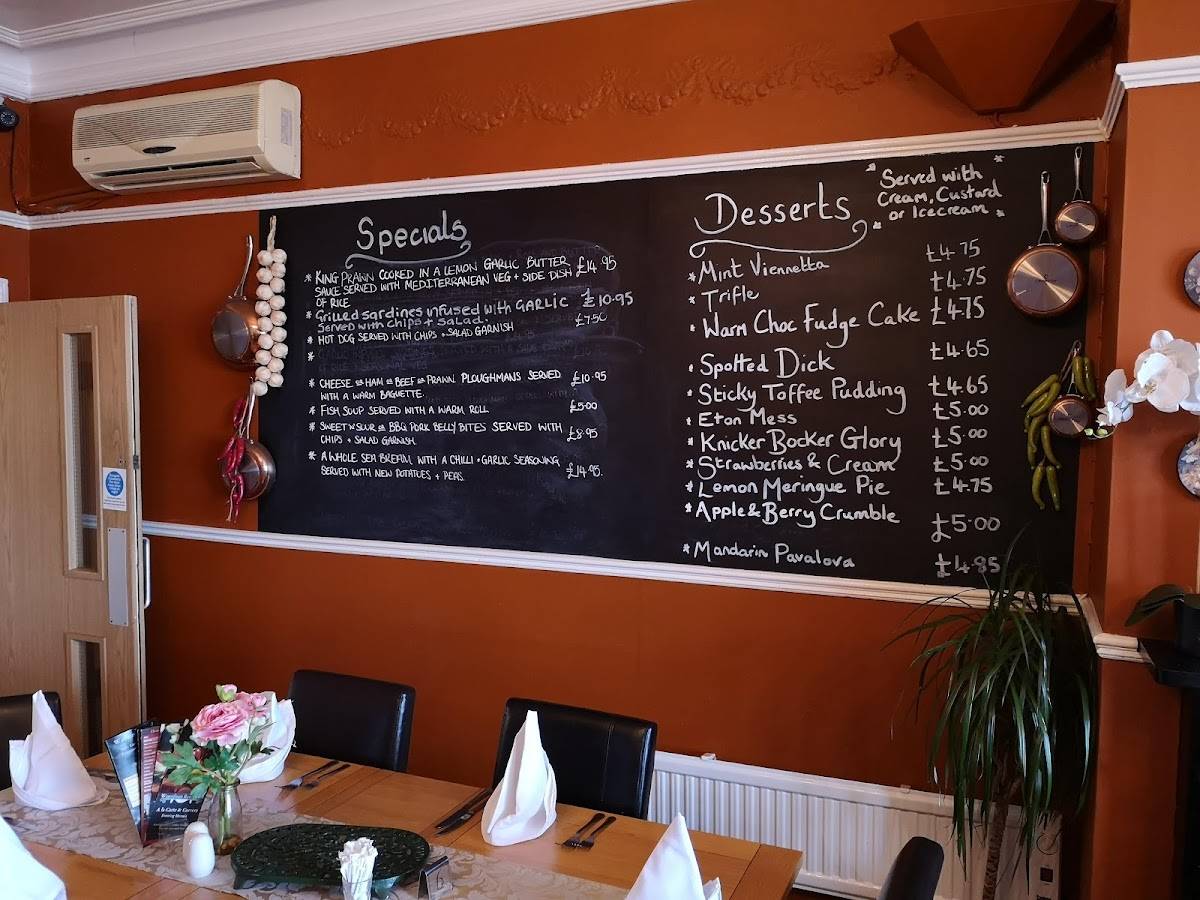 Specials
* KING PRAWN COOKED IN A LEMON GARLIC BUTTER £14.95
SAUCE SERVED WITH MEDITERRANEAN VEG + SIDE DISH
OF RICE
* Grilled sardines infused with GARLIC £10.95
Served with chips + salad.
* HOT DOG SERVED WITH CHIPS + SALAD GARNISH £7.50
*
* CHEESE OR HAM OR BEEF OR PRAWN PLOUGHMANS SERVED £10.95
WITH A WARM BAGUETTE.
* FISH SOUP SERVED WITH A WARM ROLL £5.00
* SWEET N SOUR OR BBQ PORK BELLY BITES SERVED WITH £8.95
CHIPS + SALAD GARNISH.
* A WHOLE SEA BREAM, WITH A CHILLI + GARLIC SEASONING, £14.95.
SERVED WITH NEW POTATOES + PEAS.
Desserts
* Served with *
Cream, Custard
* or Icecream *
* Mint Viennetta £4.75
* Trifle £4.75
* Warm Choc Fudge Cake £4.75
* Spotted Dick £4.65
* Sticky Toffee Pudding £4.65
* Eton Mess £5.00
* Knicker Bocker Glory £5.00
* Strawberries & Cream £5.00
* Lemon Meringue Pie £4.75
* Apple & Berry Crumble £5.00
* Mandarin Pavalova £4.85
A la Carte & Carvery
Evening Menu